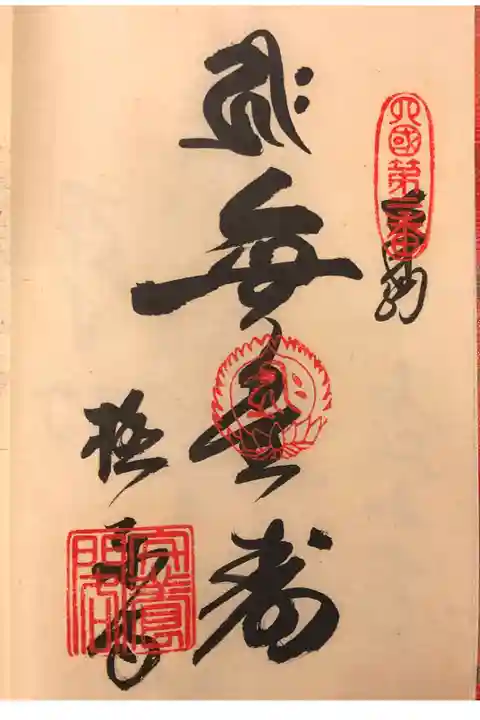 四國第二番
奉納
𑖮𑖿𑖨𑖱𑖾
無量寿
極楽寺